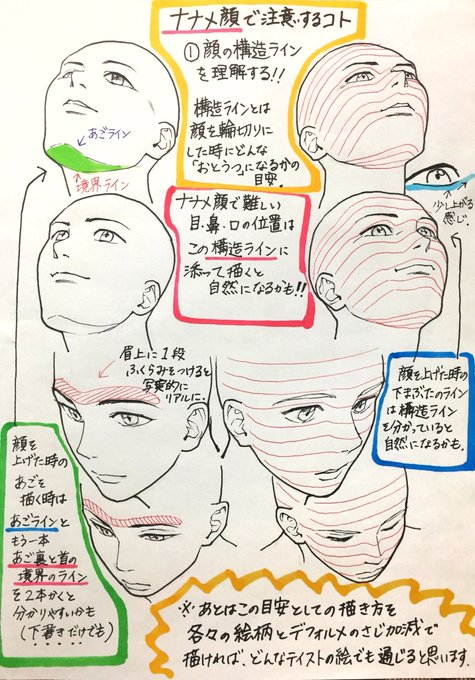 ナナメ顔で注意するコト
① 顔の構造ライン
を理解する!!
構造ラインとは
顔を輪切りに
した時にどんな
「おとうつ」になるかの
目安。
あごライン
境界ライン
少し上がる
感じ。
ナナメ顔で難しい
目・鼻・口の位置は
この構造ラインに
添って描くと
自然になるかも!!
眉上に1段
ふくらみをつけると
写実的に
リアルに。
顔を上げた時の
下まぶたのライン
は構造ライン
を分かっていると
自然になるかも。
顔を
上げた時の
あごを
描く時は
あごラインと
もう一本
あご裏と首の
境界のライン
を2本かくと
分かりやすいかも
(下書きだけでも)
※あとはこの目安としての描き方を
各々の絵柄とデフォルメのさじ加減で
描ければ、どんなテイストの絵でも通じると思います。